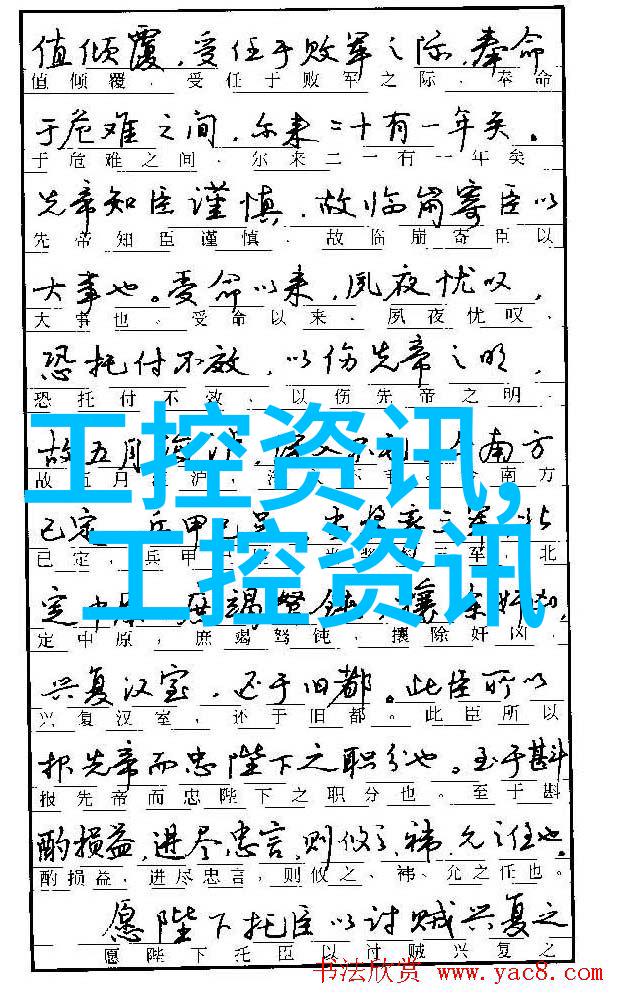 值倾覆,受任于败军之际,奉命
值倾覆,受任于败军之际,奉命
于危难之间,尔来二十有一年矣。
于危难之间,尔来二一有一年矣
先帝知臣谨慎,故临崩寄臣以
先帝知臣谨慎,故临崩寄臣以
大事也。受命以来,夙夜忧叹,
大事也。受命以来,夙夜忧叹,
恐托付不效,以伤先帝之明,
恐托付不效,以伤先帝之明,
故五月渡泸,深入不毛。今南方
故五月 泸, 入不 。 南方
工控资讯,
已定 兵甲已足 三军,北
已定,兵甲 三军,北
工控资讯
定中原,庶竭驽钝,攘除奸凶,
定中原,庶竭驽钝,攘除奸凶,
兴复汉室,还于旧都。此臣所以
兴复汉室,还于旧都。此臣所以
报先帝而忠陛下之职分也。至于斟
报先帝而忠陛下之职分也。至于斟
酌损益,进尽忠言,则攸之、祎、允之任也。
酌损益,进尽忠言,则攸之、祎、允之任也。
愿陛下托臣以讨贼兴复之
愿陛下托臣以讨贼兴复之
书法欣赏 www.yac8.com